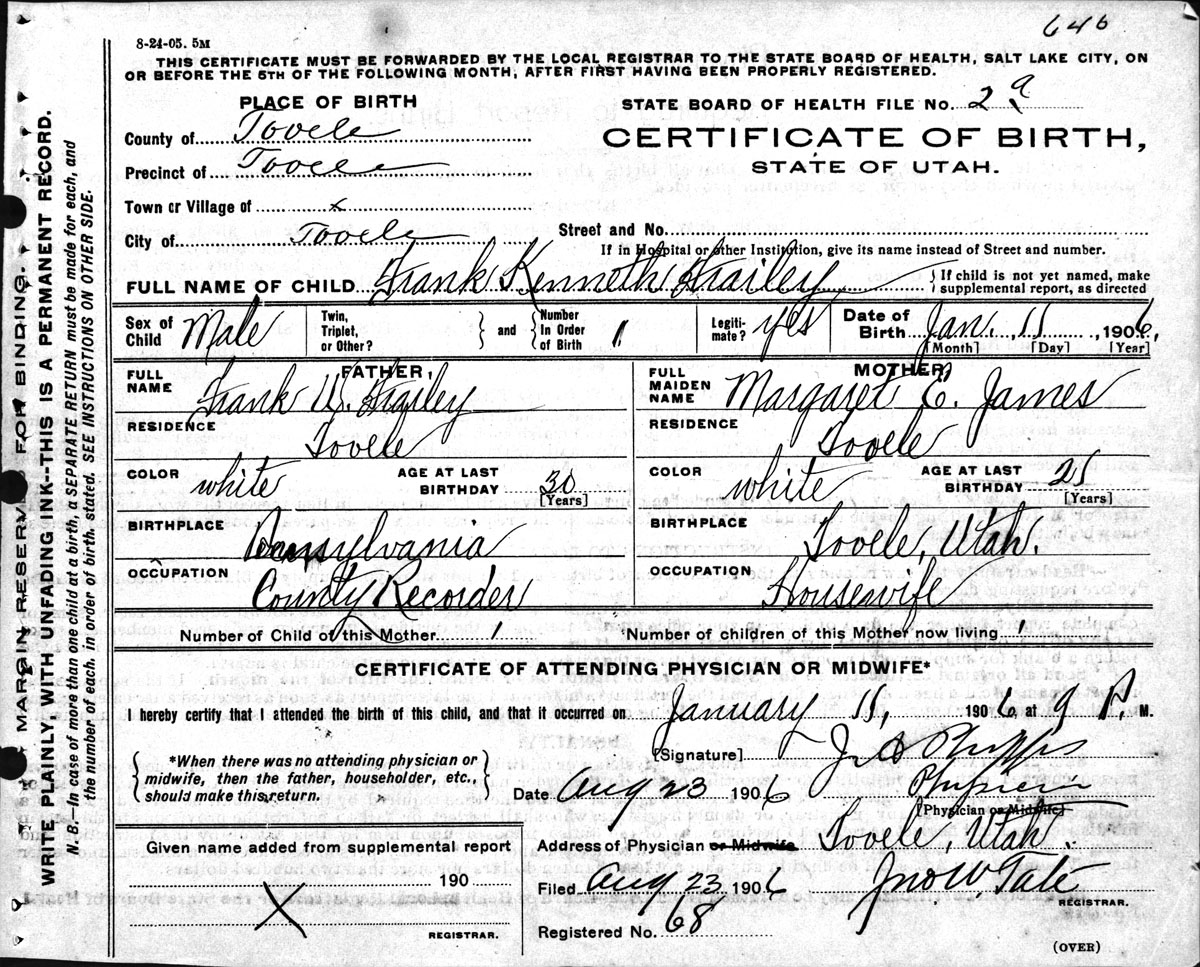 646
8-24-05. 5M
THIS CERTIFICATE MUST BE FORWARDED BY THE LOCAL REGISTRAR TO THE STATE BOARD OF HEALTH, SALT LAKE CITY, ON
OR BEFORE THE 5TH OF THE FOLLOWING MONTH, AFTER FIRST HAVING BEEN PROPERLY REGISTERED.
PLACE OF BIRTH
STATE BOARD OF HEALTH FILE No. 2 a
County of Tooele
CERTIFICATE OF BIRTH,
Precinct of Tooele
STATE OF UTAH.
Town or Village of x
City of Tooele
Street and No.
If in Hospital or other Institution, give its name instead of Street and number.
FULL NAME OF CHILD Frank Kenneth Frailey
{If child is not yet named, make
supplemental report, as directed
Sex of Child Male
Twin, Triplet, or Other?
} and {
Number In Order of Birth 1
Legiti-mate? yes
Date of Birth Jan. 11, 1906,
[Month] [Day] [Year]
FATHER,
FULL NAME Frank W. Frailey
RESIDENCE Tooele
COLOR white
AGE AT LAST BIRTHDAY 30
[Years]
BIRTHPLACE Pennsylvania
OCCUPATION County Recorder
MOTHER
FULL MAIDEN NAME Margaret E. James
RESIDENCE Tooele
COLOR white
AGE AT LAST BIRTHDAY
[Years]
BIRTHPLACE Tooele, Utah.
OCCUPATION Housewife
Number of Child of this Mother 1
Number of children of this Mother now living 1
CERTIFICATE OF ATTENDING PHYSICIAN OR MIDWIFE*
I hereby certify that I attended the birth of this child, and that it occurred on January 11, 1906, at 9 P. M.
*When there was no attending physician or
midwife, then the father, householder, etc.,
should make this return.
[Signature] J. A. Phipps
Date Aug 23 1906 Physician
[Physician or Midwife]
Address of Physician or Midwife Tooele, Utah.
Given name added from supplemental report
190
X
REGISTRAR.
Filed Aug 23 1906 Jno W Tate
REGISTRAR.
Registered No. 68
(OVER)
MARGIN RESERVED FOR BINDING.
WRITE PLAINLY, WITH UNFADING INK--THIS IS A PERMANENT RECORD.
N. B.—In case of more than one child at a birth, a SEPARATE RETURN must be made for each, and
the number of each, in order of birth, stated. SEE INSTRUCTIONS ON OTHER SIDE.